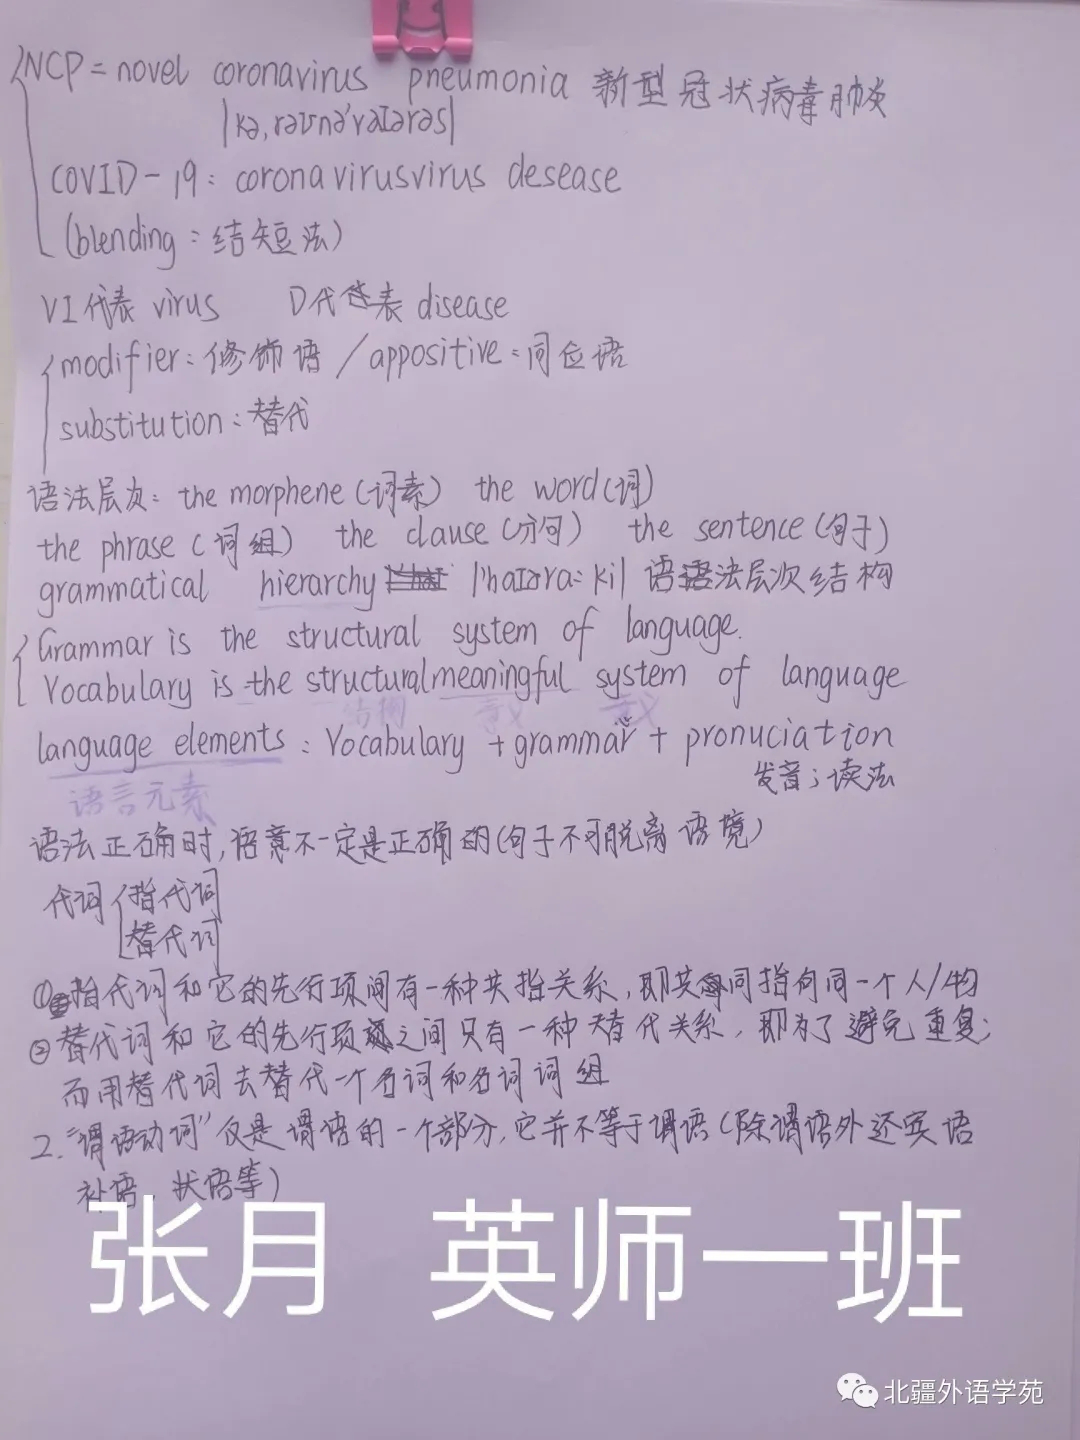 NCP = novel coronavirus pneumonia 新型冠状病毒肺炎
|kə,rəʊnə'vaɪərəs|
COVID-19: coronavirusvirus desease
(blending: 结短法)
VI代表 virus D代表 disease
modifier: 修饰语 / appositive: 同位语
substitution: 替代
语法层次: the morphene (词素) the word (词)
the phrase (词组) the clause (分句) the sentence (句子)
grammatical hierarchy |'haɪəra:ki| 语法层次结构
Grammar is the structural system of language.
Vocabulary is the structural meaningful system of language
结构 意义 意义
language elements: Vocabulary + grammar + pronuciation
发音;读法
语言元素
语法正确时,语意不一定是正确的(句子不可脱离语境)
代词 指代词
替代词
①指代词和它的先行项间有一种共指关系,即共同指向同一个人/物
②替代词和它的先行项之间只有一种替代关系,即为了避免重复;
而用替代词去替代一个名词和名词词组
2."谓语动词"仅是谓语的一个部分,它并不等于谓语(除谓语外还宾语
补语,状语等)
张月 英师一班
北疆外语学苑